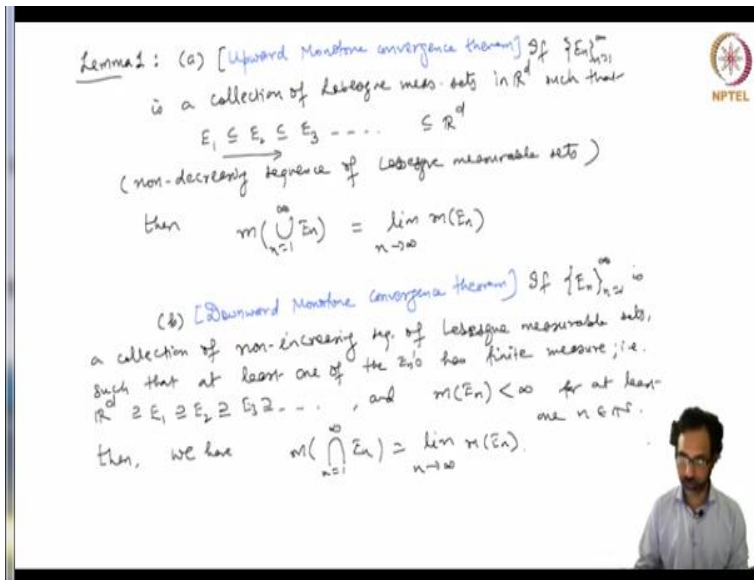 Lemma 1 : (a) [Upward Monotone convergence theorem] If {En}∞n=1
NPTEL
is a collection of Lebesgue meas. sets in ℝᵈ such that
E₁ ⊆ E₂ ⊆ E₃ ---- ⊆ ℝᵈ
(non-decreasing sequence of Lebesgue measurable sets)
then m(∪∞n=1 En) = lim n→∞ m(En)
(b) [Downward Monotone convergence theorem] If {En}∞n=1 is
a collection of non-increasing seq. of Lebesgue measurable sets,
such that at least one of the En's has finite measure; i.e.
ℝᵈ ⊇ E₁ ⊇ E₂ ⊇ E₃ ⊇ ---- , and m(En) < ∞ for at least
one n ∈ ℕ.
then, we have m(∩∞n=1 En) = lim n→∞ m(En).